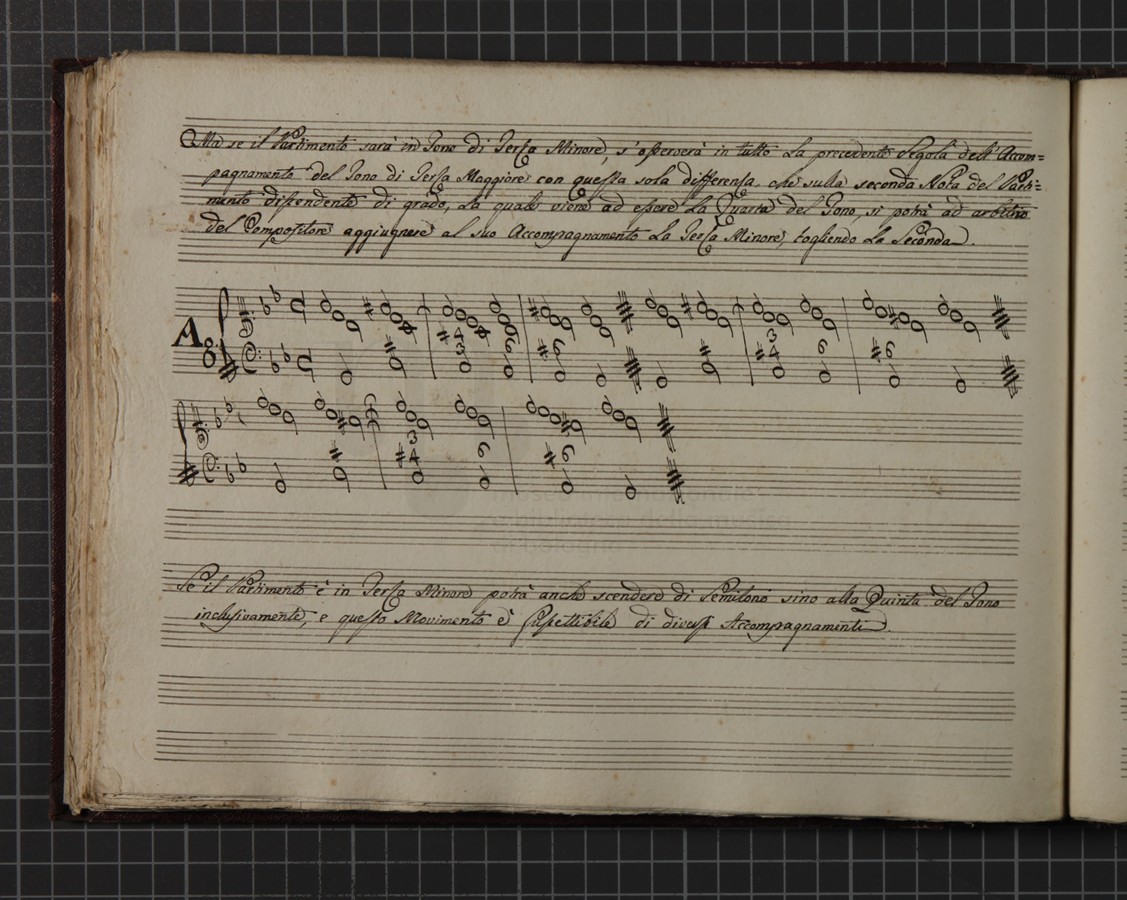 Ma se il Partimento sarà in Tono di Terza Minore, s'osserverà in tutto La precedente Regola dell'Accom=
pagnamento del Tono di Terza Maggiore con questa sola differenza, che sulla seconda Nota del Parti=
mento dipendente di grado, La quale viene ad essere La Quarta del Tono, si potrà ad arbitrio
del Compositore aggiugnere al suo Accompagnamento La Terza Minore, togliendo La Seconda.
Ag
# 4 3 6 # 6 # 3 #4 6 #6
# 3 #4 6 # 6
Se il Partimento è in Terza Minore potrà anche scendere di Semitono sino alla Quinta del Tono
inclusivamente, e questo Movimento è suscettibile di diversi Accompagnamenti.